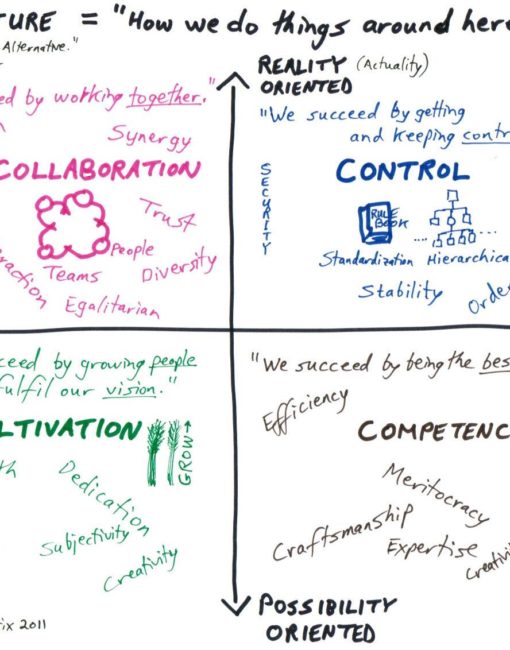 TURE = "How we do things around here
Alternative."
REALITY (Actuality)
ORIENTED
ed by working together."
Synergy
COLLABORATION
Trust
People
Teams
Diversity
raction
Egalitarian
"We succeed by getting
and keeping contr
SECURITY
CONTROL
RULE
BOOK
Standardization Hierarchica
Stability
Orde
ceed by growing people
fulfil our vision."
LTIVATION
GROW
th
Dedication
Subjectivity
Creativity
"We succeed by being the bes
Efficiency
COMPETENC
Meritocracy
Craftsmanship
Expertise
Creativi
POSSIBILITY
ORIENTED
ix 2011